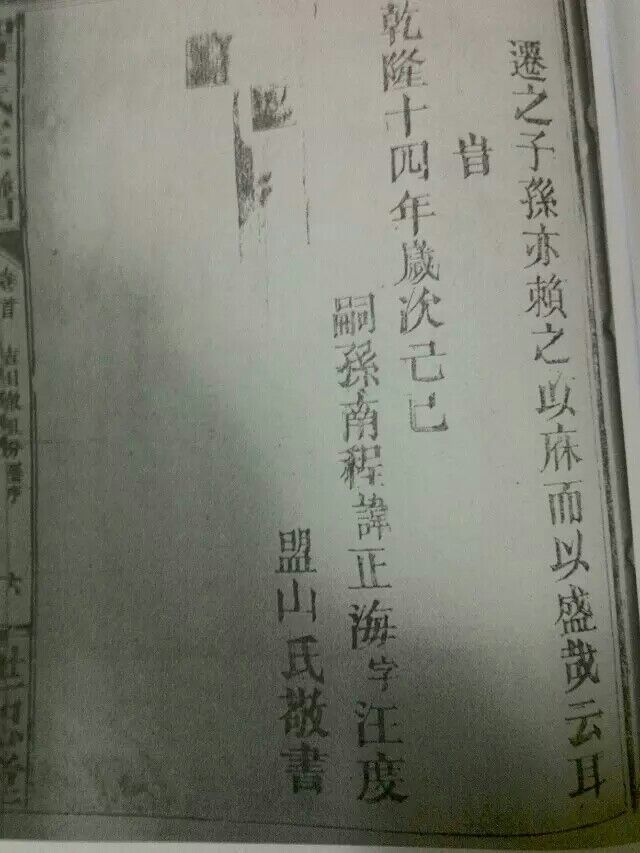 遷之子孫亦賴之以庥而以盛哉云耳
旹
乾隆十四年歲次己巳
嗣孫南程諱正海字汪度
盟山氏敬書
卷首
六